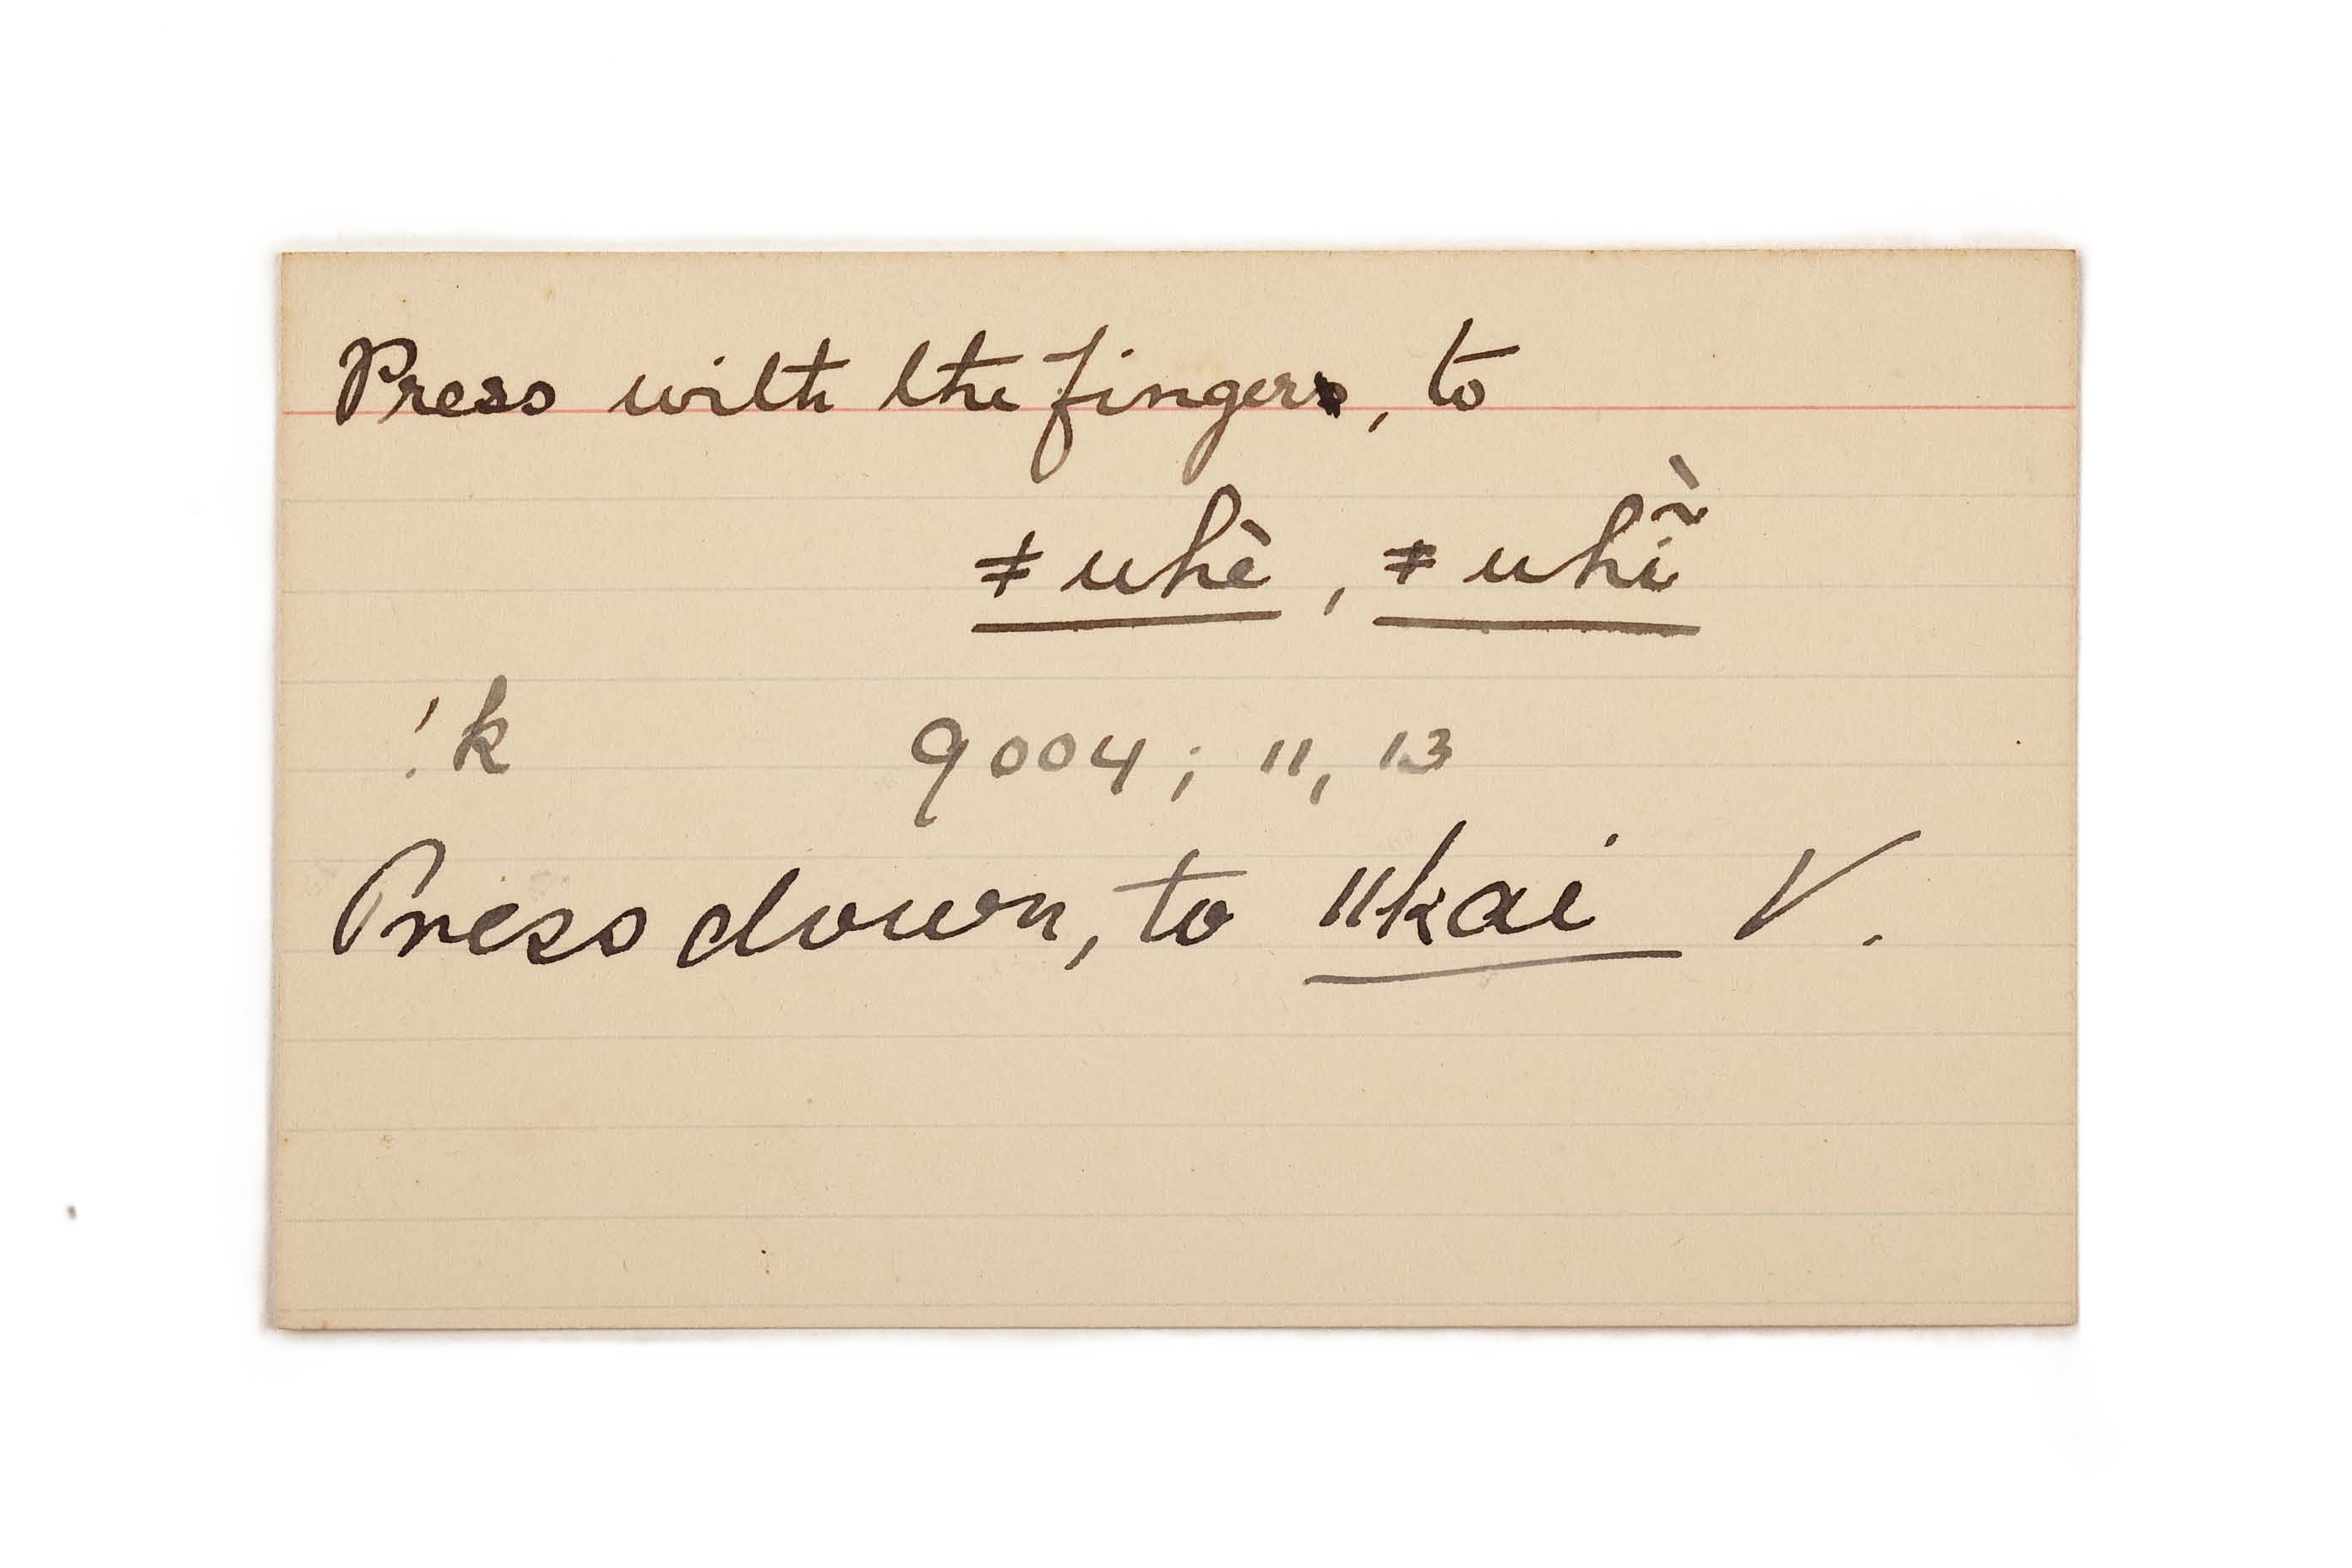 Press with the fingers, to
ǂuhè, ǂuhĩ̀
!k 9004; 11, 13
Press down, to ǁkai V.